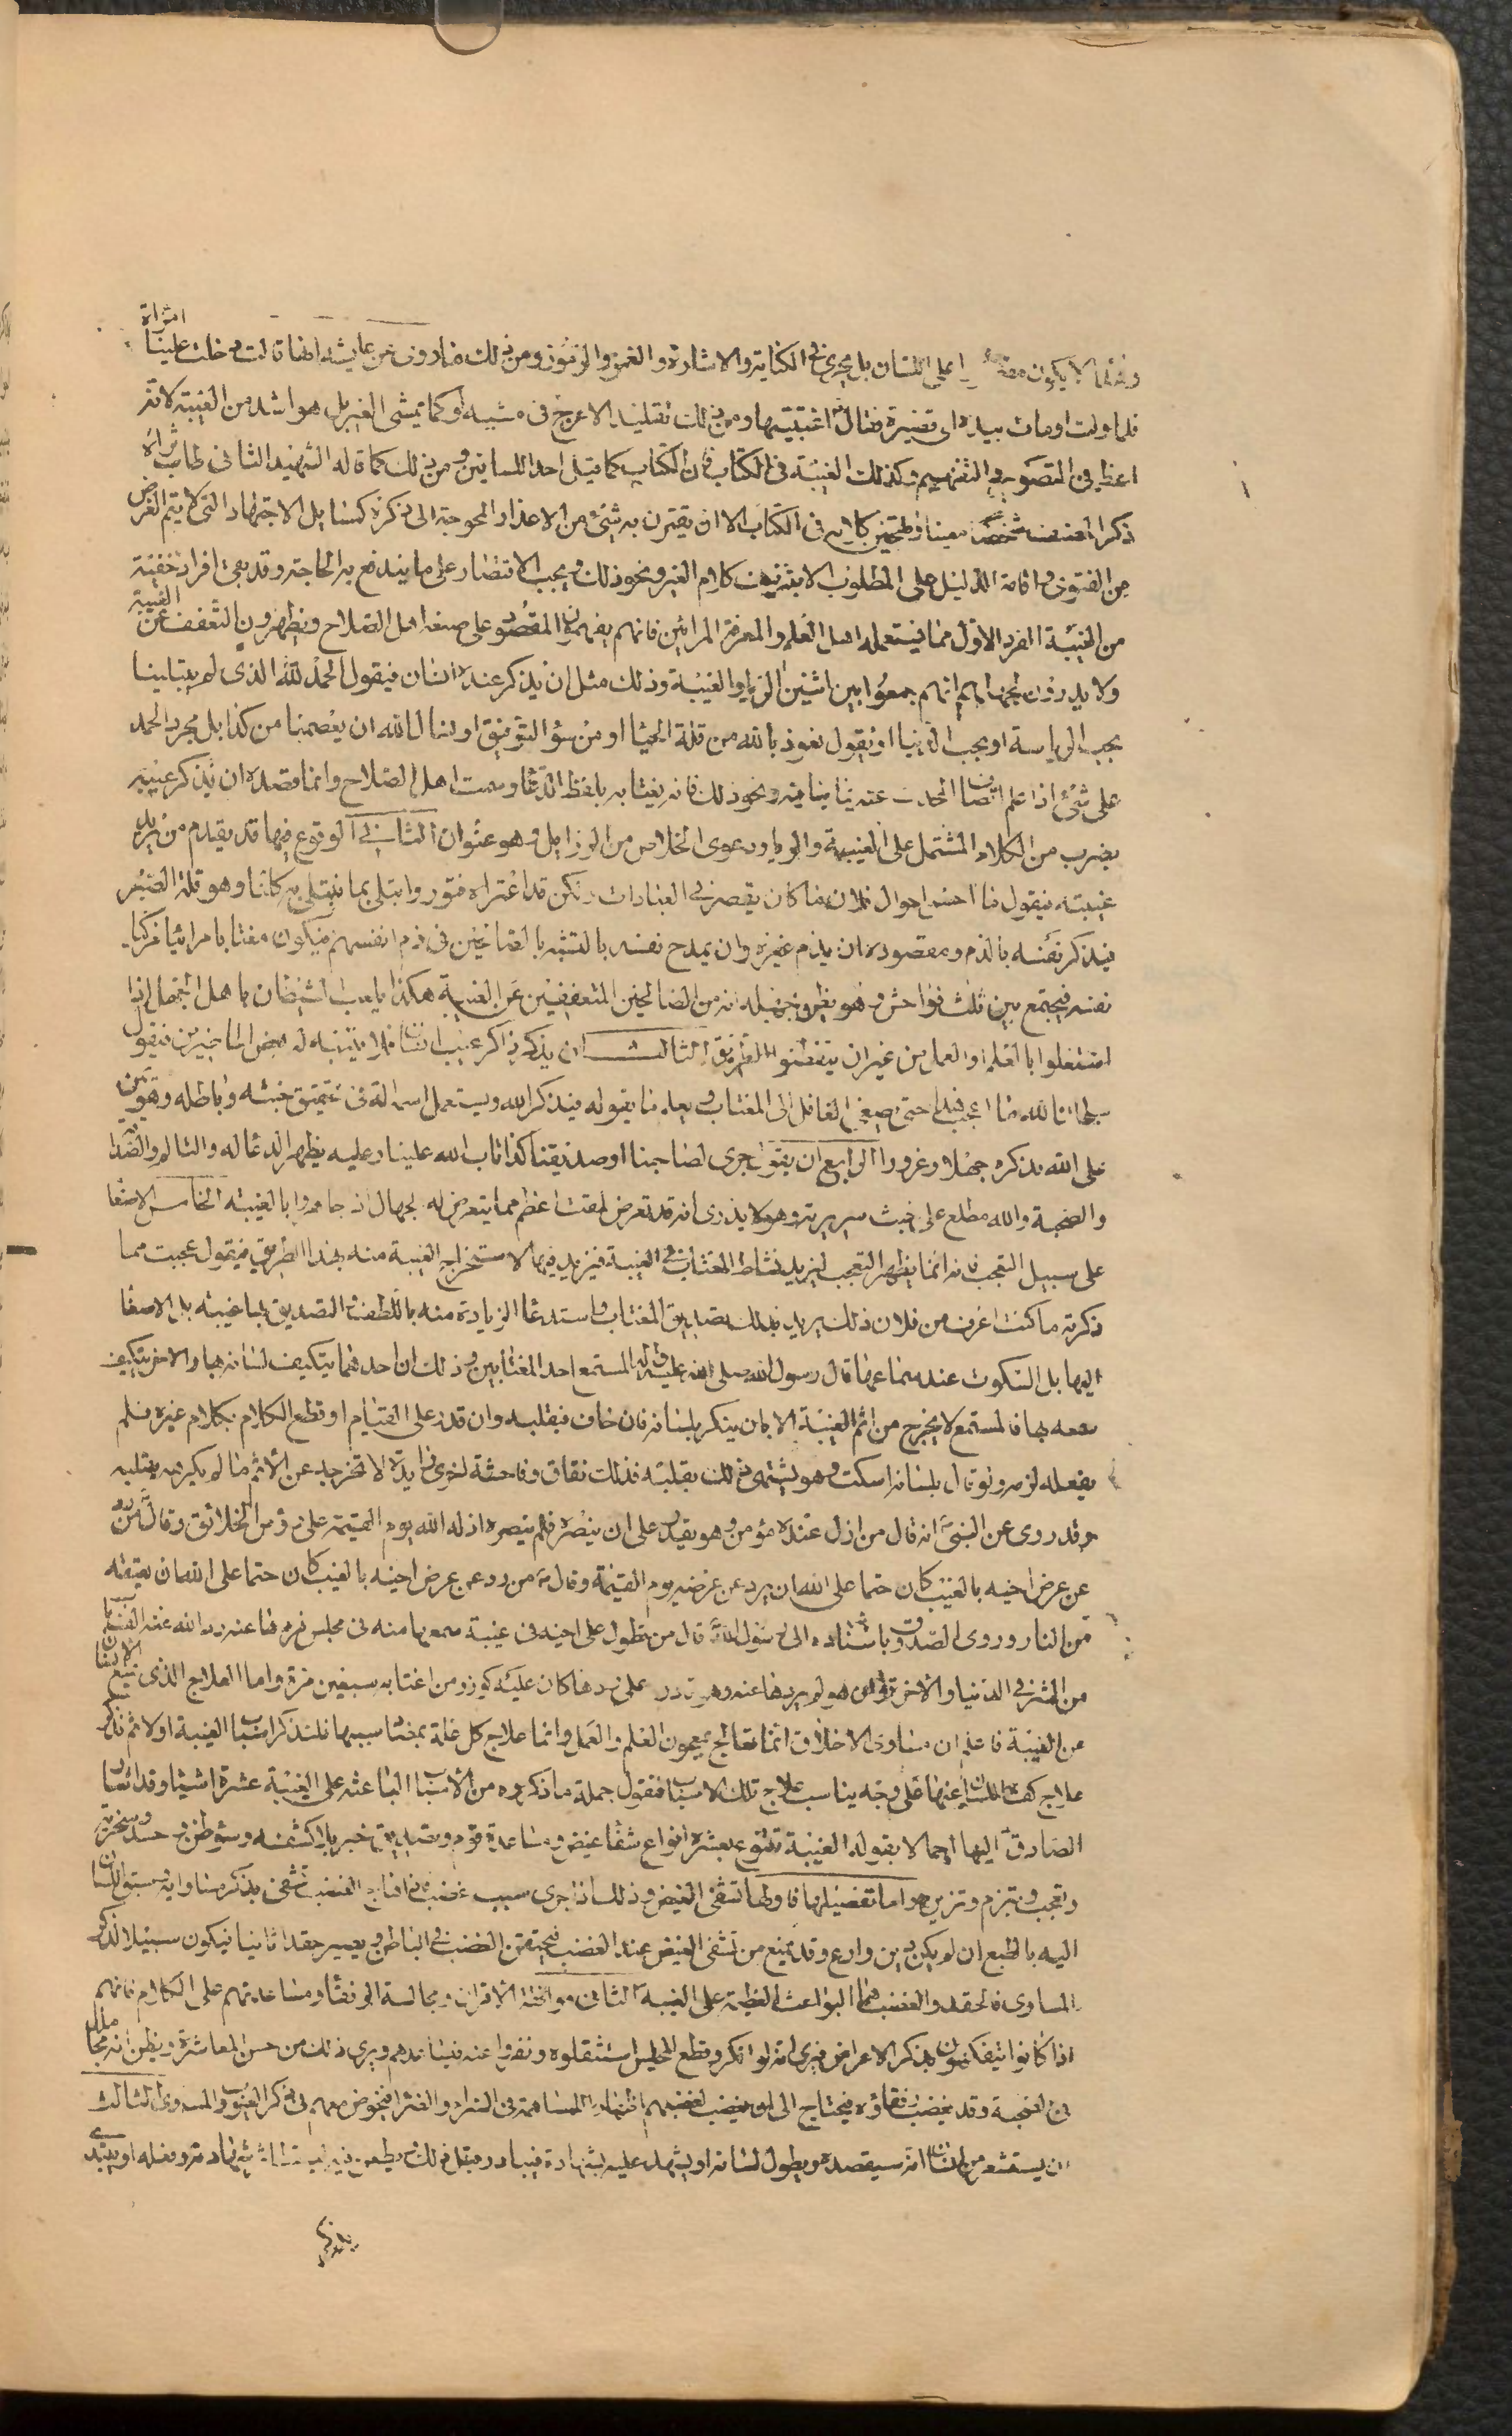 امراة
على اللسان بل يجرى فى الكناية والاشارة والغمز والرموز ومن ذلك ما روى عن عايشه انها قالت دخلت علينا
فلما ولت اومات بيدى اى قصيرة فقال اغتبتيها ومن ذلك تقليد الاعرج فى مشيه او كما يمشى الغير بل هو اشد من الغيبة لانه
اعظم فى التصوير والتفهيم وكذلك الغيبة فى الكتاب فان الكتاب كما قيل احد اللسانين ومن ذلك كما قاله الشهيد الثانى طاب ثراه
ذكر المصنف شخصا معينا وتهجين كلامه فى الكتاب الا ان يقترن به شئ من الاعذار المحوجة الى ذكره كمسايل الاجتهاد التى لا يتم الغرض
من الفتوى واقامة الدليل على المطلوب الا بتزييف كلام الغير ونحو ذلك ويجب الاقتصار على ما يندفع به الحاجة وقد بقى افراد خفية
من الغيبة الفرد الاول مما يستعمله اهل العلم والمعرفة المرائين فانهم يفهمون المقصود على صفة اهل الصلاح ويظهرون التعفف عن الغيبة
ولا يدرون بجهلهم انهم جمعوا بين اثنين الريا والغيبة وذلك مثل ان يذكر عنده انسان فيقول الحمد لله الذى لم يبتلينا
بحب الرياسة او بحب الدنيا او يقول نعوذ بالله من قلة الحيا او من سؤ التوفيق او نسال الله ان يعصمنا من كذا بل مجرد الحمد
على شئ اذا علم اتصاف المحدث عنه بما ينافيه ونحو ذلك فانه يغتابه بلفظ الدعا وسمت اهل الصلاح وانما قصده ان يذكر عيبه
بضرب من الكلام المشتمل على الغيبة والريا ودعوى الخلاص من الرذايل وهو عنوان الثانى الوقوع فيها قد يقدم من يريد
غيبته فيقول ما احسن احوال فلان ما كان يقصر فى العبادات ولكن قد اعتراه فتور وابتلى بما يبتلى به كلنا وهو قلة الصبر
فيذكر نفسه بالذم ومقصوده ان يذم غيره وان يمدح نفسه بالتشبه بالصالحين فى ذم انفسهم فيكون مغتابا مرائيا مزكيا
نفسه فيجتمع بين ثلث فواحش وهو يظن بجهله انه من الصالحين المتعففين عن الغيبة هكذا يلعب الشيطان باهل الجهل اذا
اشتغلوا بالعلم او العمل من غير ان يتقنوا الطريق الثالث ان يذكر ذاكر عيب انسان فلا يتنبه له بعض الحاضرين فيقول
سبحان الله ما اعجب هذا حتى يصغى الغافل الى المغتاب ويعلم ما يقوله فيذكر الله ويستعمل اسمه الة فى تحقيق خبثه وباطله وهو يمن
على الله بذكره جهلا وغرورا الرابع ان يقول جرى لصاحبنا او صديقنا كذا تاب الله علينا وعليه يظهر الدعا له والتالم والصداقة
والصحبة والله مطلع على خبث سريرته وهو لا يدرى انه قد تعرض لمقت اعظم مما يتعرض له الجهال اذا جاهروا بالغيبة الخامس الاصغا
على سبيل التعجب فانه انما يظهر التعجب ليزيد نشاط المغتاب فى الغيبة فيزيد فيها لاستخراج الغيبة منه بهذا الطريق فيقول عجبت مما
ذكرته ما كنت اعرف من فلان ذلك يريد بذلك تصديق المغتاب واستدعا الزيادة منه باللطف والتصديق لها غيبة بل الاصغا
اليها بل السكوت عند سماعها قال رسول الله صلى الله عليه واله المستمع احد المغتابين وذلك ان احدهما يتكيف لسانه بها والاخر يتكيف
سمعه بها فالمستمع لا يخرج من اثم الغيبة الا بان ينكر بلسانه فان خاف فبقلبه وان قدر على القيام او قطع الكلام بكلام غيره فلم
يفعله لزمه ولو قال بلسانه اسكت وهو يشتهى ذلك بقلبه فذلك نفاق وفاحشة اخرى زايدة لا تخرجه عن الاثم ما لم يكرهه بقلبه
وقد روى عن النبى انه قال من اذل عنده مؤمن وهو يقدر على ان ينصره فلم ينصره اذله الله يوم القيمة على رؤس الخلائق وقال من رد
عن عرض اخيه بالغيب كان حتما على الله ان يرد عن عرضه يوم القيمة وقال من رد عن عرض اخيه بالغيب كان حتما على الله ان يعتقه
من النار وروى الصدوق باسناده الى رسول الله قال من تطول على اخيه فى غيبة سمعها منه فى مجلس فردها عنه رد الله عنه الف باب
من الشر فى الدنيا والاخرة وان هو لم يردها عنه وهو قادر على ردها كان عليه كوزر من اغتابه سبعين مرة واما العلاج الذى يمنع الانسان
عن الغيبة فاعلم ان مساوى الاخلاق انما تعالج بمعجون العلم والعمل وانما علاج كل علة بمضاد سببها فلنذكر اسباب الغيبة اولا ثم نذكر
علاج كف اللسان عنها على وجه يناسب علاج تلك الاسباب فنقول جملة ما ذكروه من الاسباب الباعثه على الغيبة عشرة اشيا وقد اشار
الصادق اليها اجمالا بقوله الغيبة تتنوع بعشرة انواع شفا غيض ومساعدة قوم وتصديق خبر بلا كشفه وسؤ ظن وحسد وسخرية
وتعجب وتبرم وتزين واما تفضيلها فاولها تشفى الغيض وذلك اذا جرى سبب غضب فاذا هاج الغضب تشفى بذكر مساويه وسبق اللسان
اليه بالطبع ان لم يكن دين وازع وقد يمنع من تشفى الغيض عند الغضب فيحتقن الغضب فى الباطن ويصير حقدا ثابتا فيكون سببا لذكر
المساوى فالحقد والغضب هما البواعث العظيمة على الغيبة الثانى موافقة الاقران ومجالسة الرفقا ومساعدتهم على الكلام فانهم
اذا كانوا يتفكهون بذكر الاعراض فيرى انه لو انكر وقطع المجلس استثقلوه ونفروا عنه فيساعدهم ويرى ذلك من حسن المعاشرة ويظن انه مجاملة
فى الصحبة وقد يغضب رفقاؤه فيحتاج الى ان يغضب لغضبهم اظهارا للمساهمة فى السراء والضرا فيخوض معهم فى ذكر العيوب والمساوى الثالث
ان يستشعر من انسان انه سيقصده ويطول لسانه او يشهد عليه بشهادة فيبادر قبل ذلك ويطعن فيه ليسقط اثر شهادته وفعله او يبتدى
بذكر